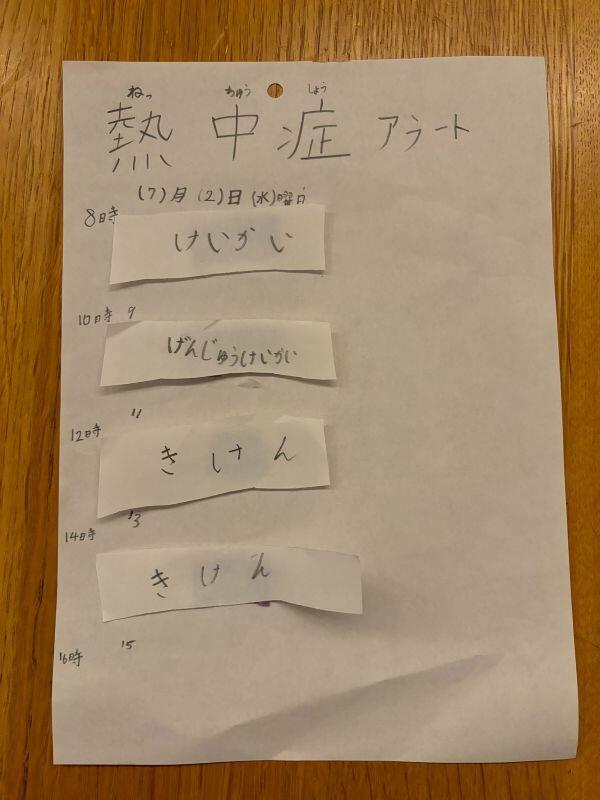 ねっ ちゅう しょう
熱 中 症 アラート
(7)月(2)日(水)曜日
8時
けいかい
10時 9
げんじゅうけいかい
12時 11
きけん
14時 13
きけん
16時 15